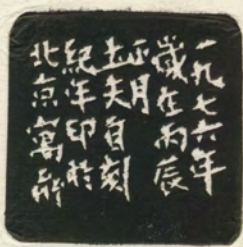 一九七六年
歲在丙辰
正月
土夫自刻
紀年印於
北京寓所